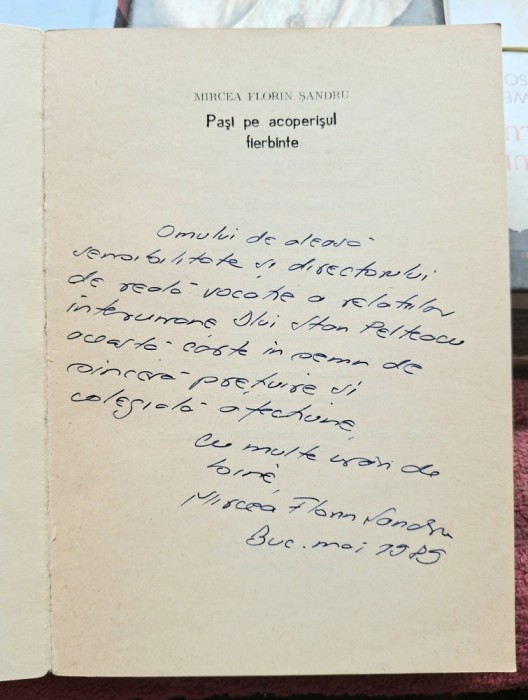 MIRCEA FLORIN ȘANDRU
Pași pe acoperișul
fierbinte
Omului de aleasă
sensibilitate și directorului
de reală vocație a relațiilor
interumane Dlui Stan Pelteacu
această carte în semn de
sinceră prețuire și
colegială afecțiune,
cu multe urări de
bine,
Mircea Florin Șandru
Buc. mai 1989